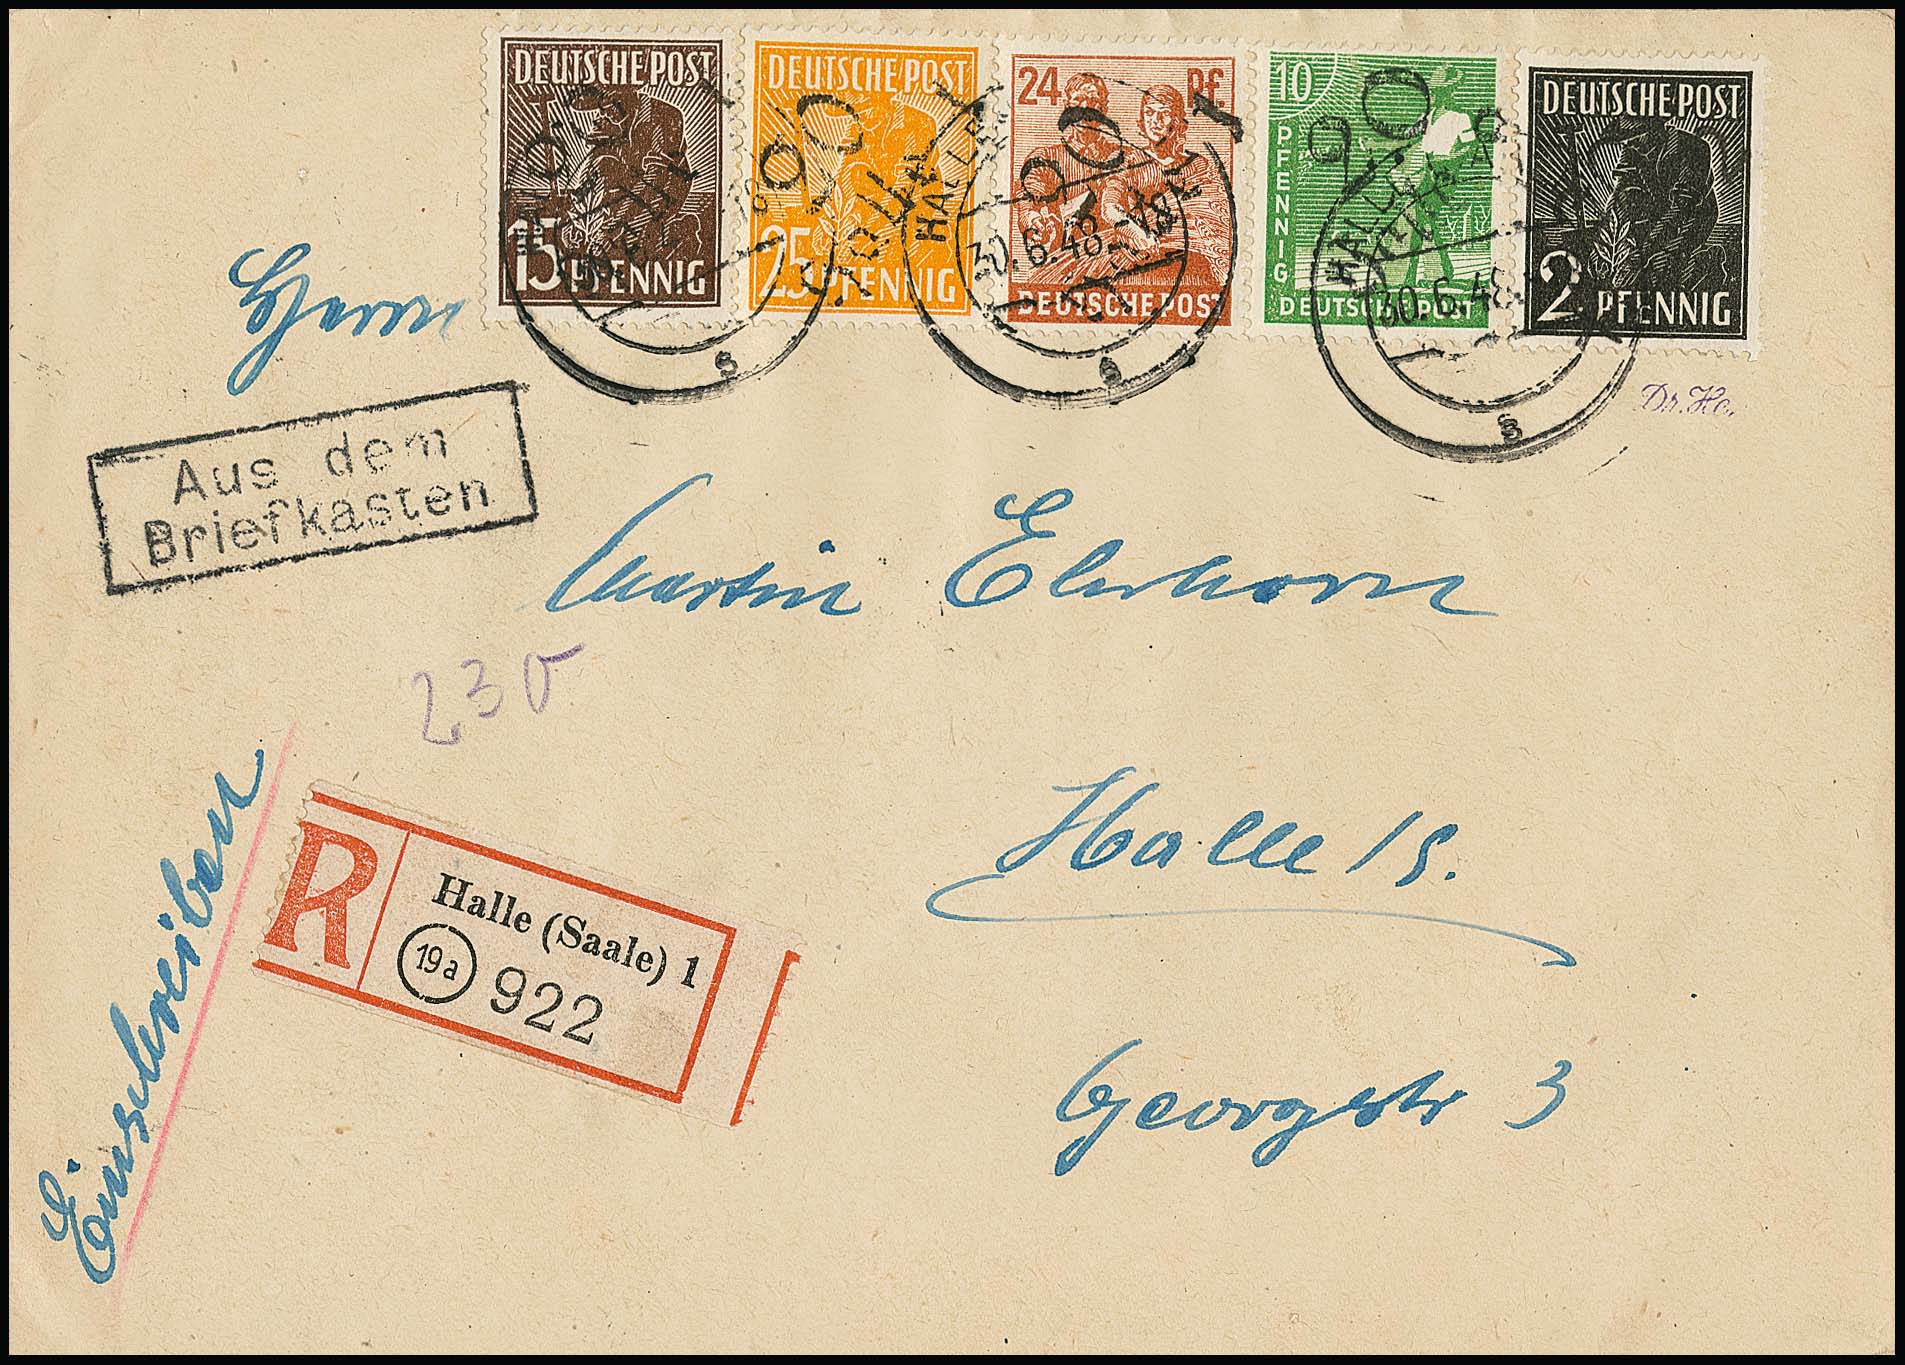 DEUTSCHE POST
15 PFENNIG
DEUTSCHE POST
25 PFENNIG
24 PF
DEUTSCHE POST
10
PFENNIG
DEUTSCHE POST
DEUTSCHE POST
2 PFENNIG
20
20
20
HALLE
30.6.48
s
s
HALLE
30.6.48
s
Dr. He.
Herrn
Aus dem
Briefkasten
Martin Elerhorn
230
Halle/S.
Georgstr 3
Einschreiben
R
Halle (Saale) 1
19a 922